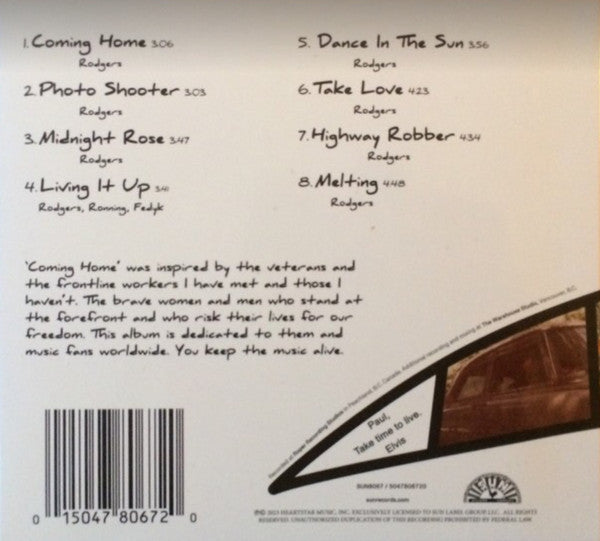 1. Coming Home 3:06
Rodgers
2. Photo Shooter 3:03
Rodgers
3. Midnight Rose 3:47
Rodgers
4. Living It Up 3:41
Rodgers, Ronning, Fedyk
5. Dance In The Sun 3:56
Rodgers
6. Take Love 4:23
Rodgers
7. Highway Robber 4:34
Rodgers
8. Melting 4:48
Rodgers
'Coming Home' was inspired by the veterans and
the frontline workers I have met and those I
haven't. The brave women and men who stand at
the forefront and who risk their lives for our
freedom. This album is dedicated to them and
music fans worldwide. You keep the music alive.
Recorded at Roper Recording Studios in Peachland, B.C. Canada. Additional recording and mixing at The Warehouse Studio, Vancouver, B.C.
Paul,
Take time to live.
Elvis
0 15047 80672 0
SUN8067 / 5047806720
sunrecords.com
SUN
℗© 2023 HEARTSTAR MUSIC, INC. EXCLUSIVELY LICENSED TO SUN LABEL GROUP, LLC. ALL RIGHTS
RESERVED. UNAUTHORIZED DUPLICATION OF THIS RECORDING PROHIBITED BY FEDERAL LAW